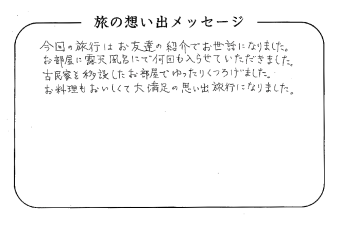 旅の想い出メッセージ
今回の旅行はお友達の紹介でお世話になりました。
お部屋に露天風呂にで何回も入らせていただきました。
古民家を移設したお部屋でゆったりくつろげました。
お料理もおいしくて大満足の思い出旅行になりました。